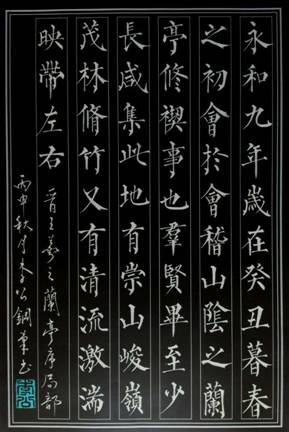 永和九年歲在癸丑暮春
之初會於會稽山陰之蘭
亭修禊事也羣賢畢至少
長咸集此地有崇山峻嶺
茂林脩竹又有清流激湍
映帶左右
晋王羲之蘭亭序局部
丙申秋月